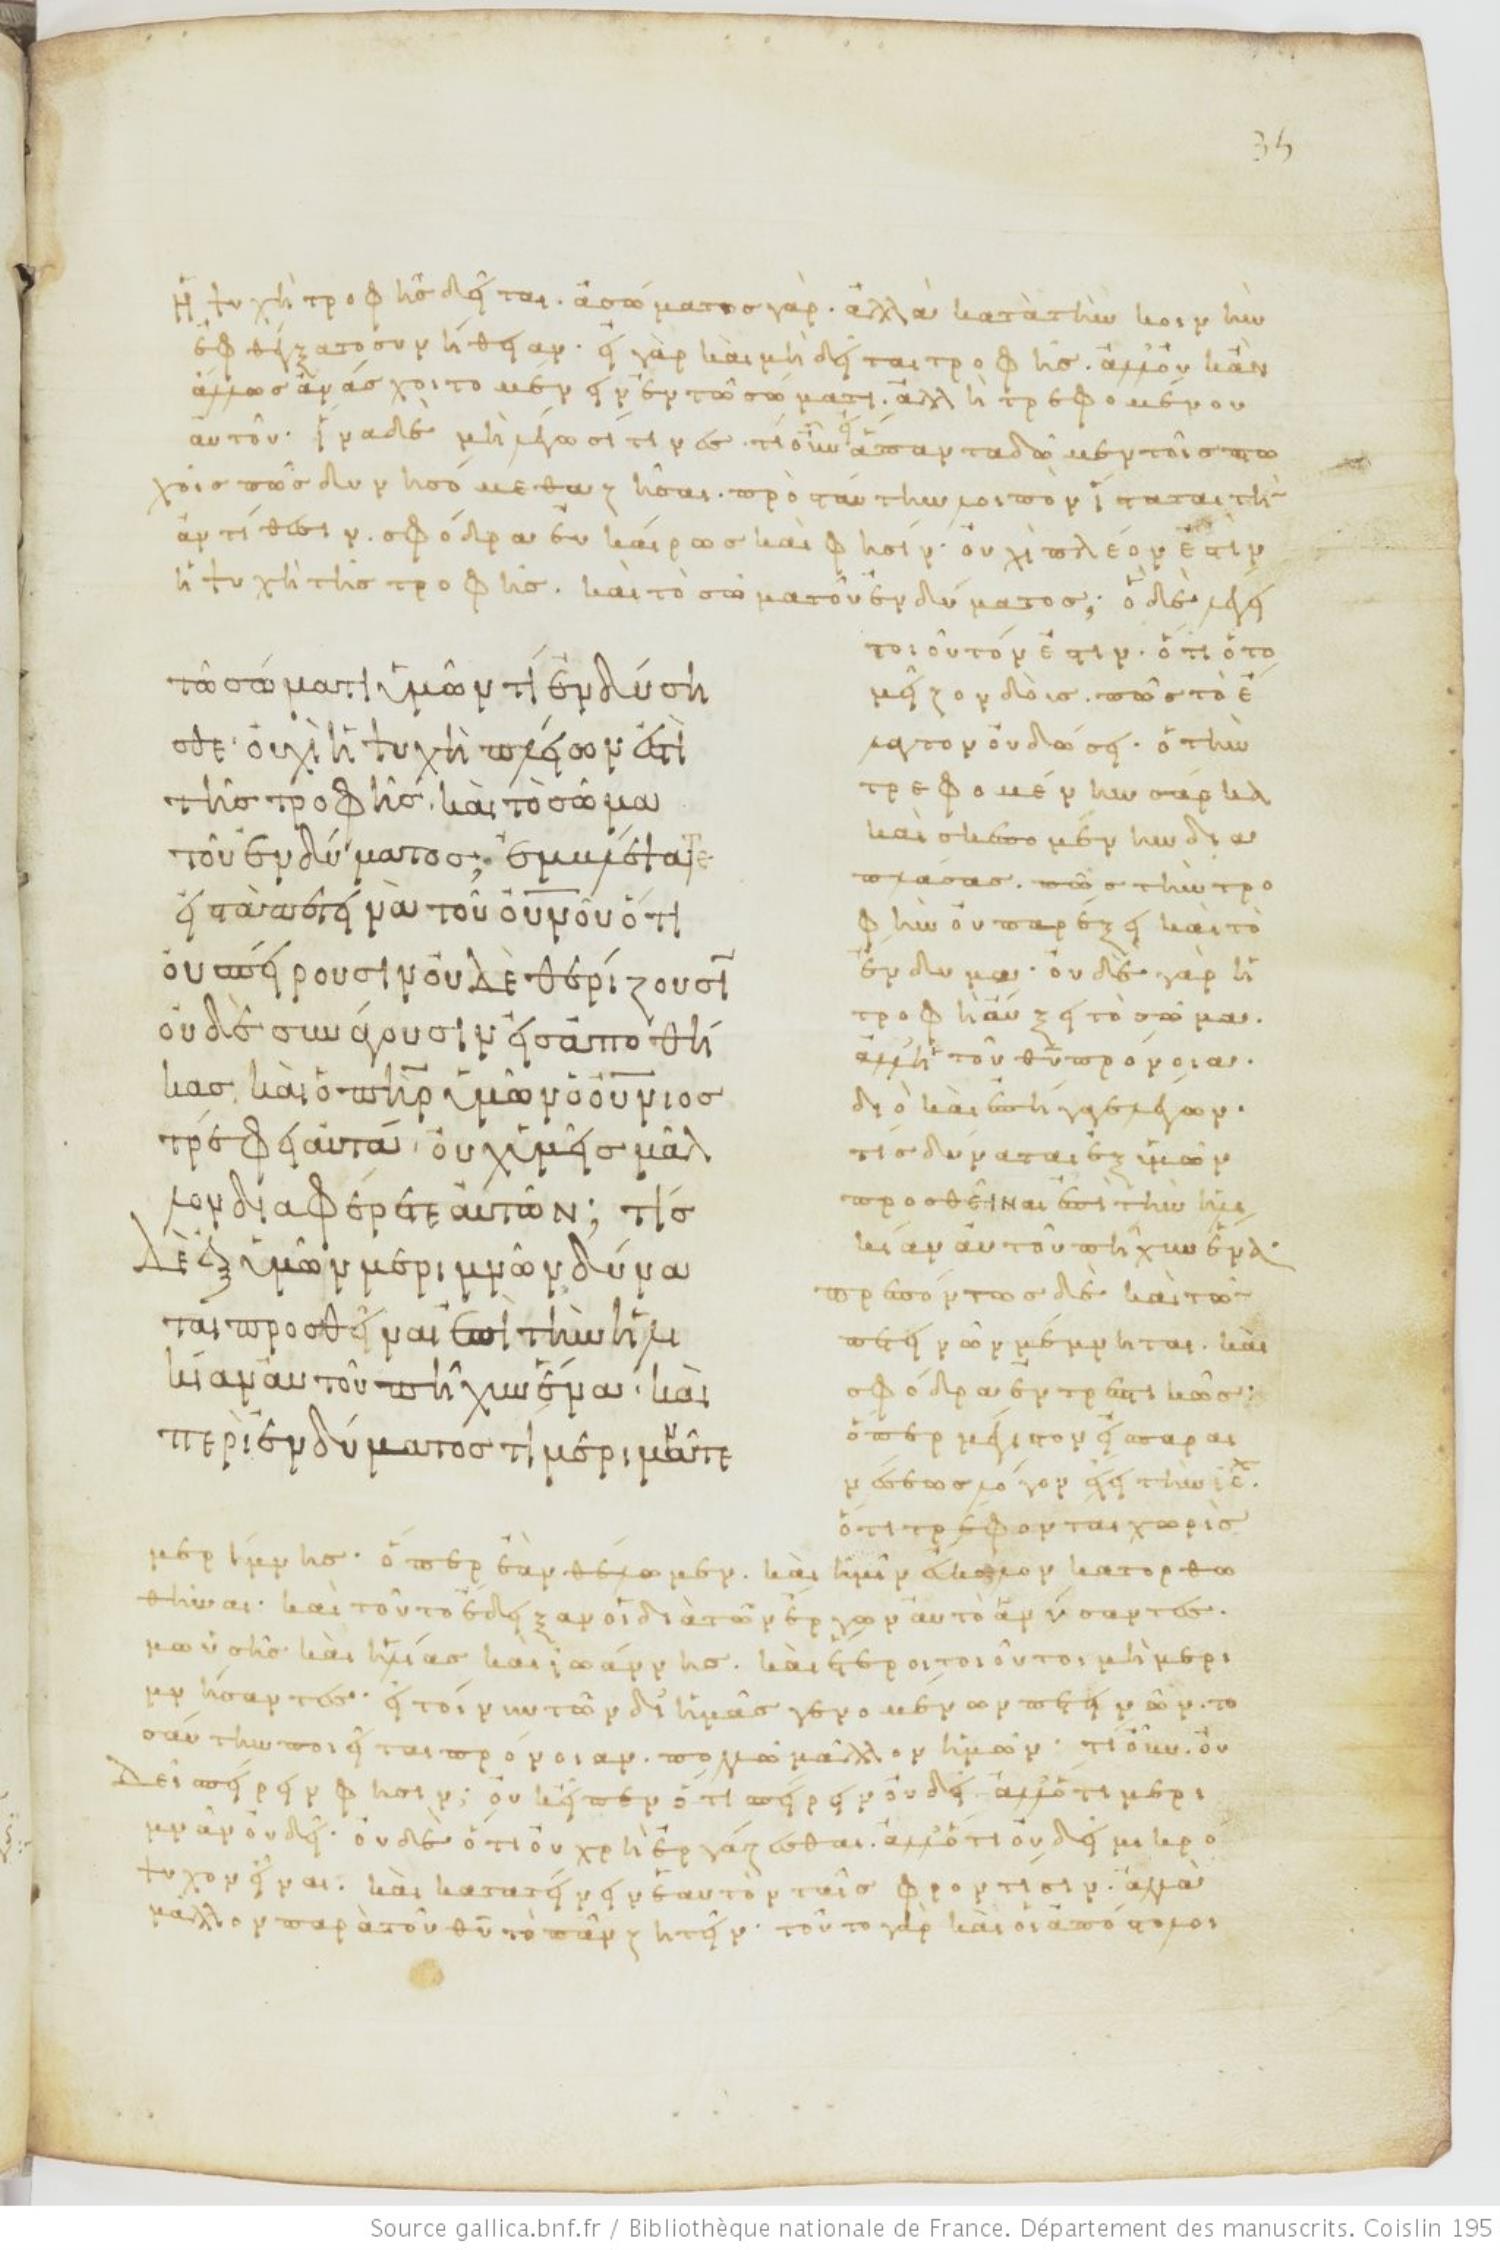 35
ἡ ψυχὴ τροφῆς δεῖται. ἀσώματος γὰρ. ἀλλὰ κατὰ τὴν κοινὴν
ἐφθέγξατο συνήθειαν. εἰ γὰρ καὶ μὴ δεῖται τροφῆς. ἀλλ' οὐκ ἂν
ἄλλως ἀνάσχοιτο μένειν ἐν τῶ σώματι. ἀλλ' ἢ τρεφομένου
αὐτοῦ. ἵνα δὲ μὴ λέγωσί τινες. τί οὖν εἰ ἅπαντα δῶμεν τοῖς πτω
χοῖς πῶς δυνησόμεθα ζῆσαι. πρὸς ταύτην λοιπὸν ἵσταται τὴν
ἀντίθεσιν. σφόδρα εὐκαίρως καὶ φησίν. οὐχὶ πλέον ἐστὶν
ἡ ψυχὴ τῆς τροφῆς. καὶ τὸ σῶμα τοῦ ἐνδύματος; ὃ δὲ λέγει
τῶ σώματι ὑμῶν τί ἐνδύση
σθε· οὐχὶ ἡ ψυχὴ πλείων ἐστὶ
τῆς τροφῆς. καὶ τὸ σῶμα
τοῦ ἐνδύματος; ἐμβλέψατε
εἰς τὰ πετεινὰ τοῦ οὐνοῦ ὅτι
οὐ σπείρουσιν οὐδὲ θερίζουσιν
οὐδὲ συνάγουσιν εἰς ἀποθή
κας. καὶ ὁ πηρ ὑμῶν ὁ οὐνιος
τρέφει αὐτά. οὐχ ὑμεῖς μᾶλ
λον διαφέρετε αὐτῶν; τίς
δὲ ἐξ ὑμῶν μεριμνῶν δύνα
ται προσθεῖναι ἐπὶ τὴν ἡλι
κίαν αὐτοῦ πῆχυν ἕνα. καὶ
περὶ ἐνδύματος τί μεριμνᾶτε
τοιοῦτόν ἐστιν. ὅτι ὁ τὸ
μεῖζον δοὺς. πῶς τὸ ἔ
λαττον οὐ δώσει. ὁ τὴν
τρεφομένην σάρκα
καὶ σκεπομένην δια
πλάσας. πῶς τὴν τρο
φὴν οὐ παρέξει καὶ τὸ
ἔνδυμα. οὐδὲ γὰρ ἡ
τροφὴ αὔξει τὸ σῶμα.
ἀλλ' ἡ τοῦ θυ πρόνοια.
διὸ καὶ ἐπήγαγε λέγων.
τίς δύναται ἐξ ὑμῶν
προσθεῖναι ἐπὶ τὴν ἡλι
κίαν αὐτοῦ πῆχυν ἕνα.
πρεπόντως δὲ καὶ τῶν
πετεινῶν μέμνηται. καὶ
σφόδρα ἐντρεπτικῶς.
ὅπερ λείπον εἰς παραι
νέσεως λόγον
ὅτι τρέφονται χωρὶς
μερίμνης. ὅπερ ἐὰν θέλωμεν. καὶ ἡμῖν εὔκολον κατορθω
θῆναι. καὶ τοῦτο ἔδειξαν οἱ διὰ τῶν ἔργων αὐτὸ ἀνύσαντες.
μωϋσῆς καὶ ἡλίας καὶ ἰωάννης. καὶ ἕτεροι τοιοῦτοι μὴ μερι
μνήσαντες. εἰ τοίνυν τῶν δι' ἡμᾶς γενομένων πετεινῶν. το
σαύτην ποιεῖται πρόνοιαν. πολλῶ μᾶλλον ἡμῶν. τί οὖν. οὐ
δεῖ σπείρειν φησιν; οὐκ εἶπεν ὅτι σπείρειν οὐ δεῖ. ἀλλ' ὅτι μερι
μνᾶν οὐ δεῖ. οὐδὲ ὅτι οὐ χρὴ ἐργάζεσθαι. ἀλλ' ὅτι οὐ δεῖ μικρό
ψυχον εἶναι. καὶ κατατείνειν ἑαυτὸν ταῖς φροντίσιν. ἀλλὰ
μᾶλλον παρὰ τοῦ θυ τὸ πᾶν ζητεῖν. τοῦτο γὰρ καὶ οἱ ἀπόστολοι
Source gallica.bnf.fr / Bibliothèque nationale de France. Département des manuscrits. Coislin 195